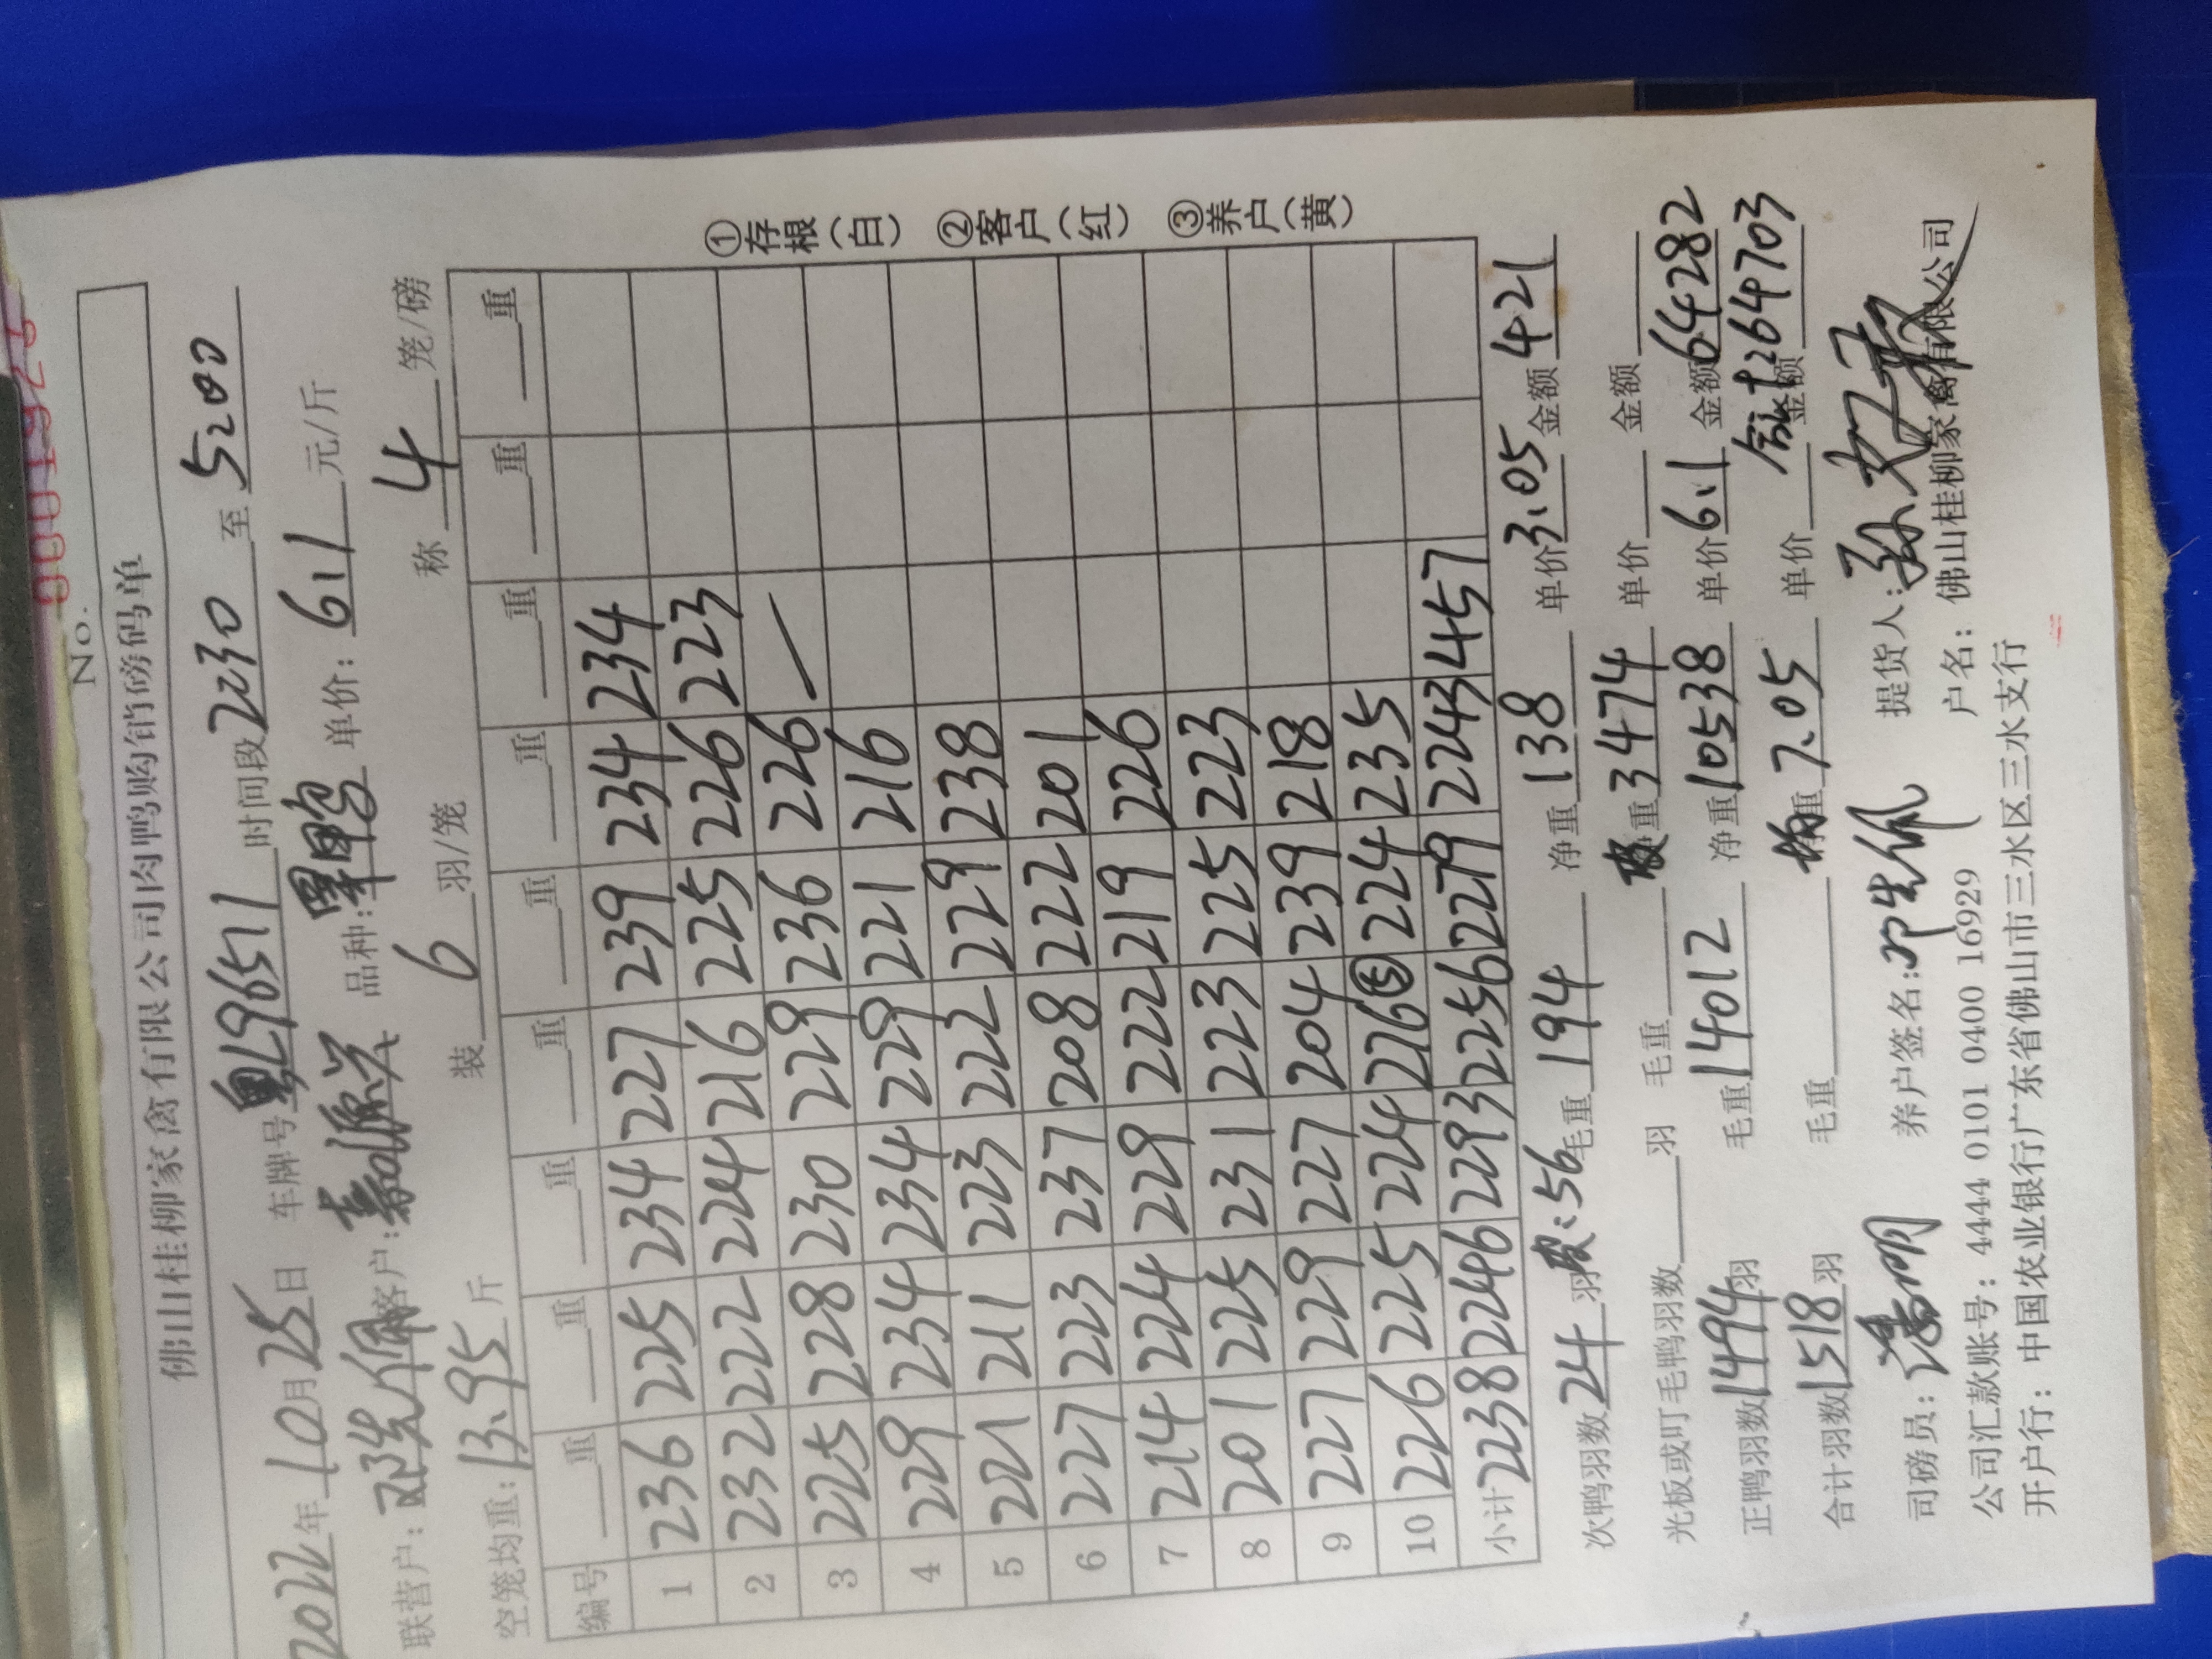 No. 0001926
佛山桂柳家禽有限公司肉鸭购销磅码单
2022年10月25日 车牌号粤L9651 时间段2230至5200
联营户: 邓先佩 客户:嘉源兴 品种:单鸭 单价: 6.1 元/斤
空笼均重:13.95斤 装 6 羽/笼 称 4 笼/磅
编号 重 重 重 重 重 重 重 重 重
1 236 225 234 227 239 234 234
2 232 222 224 216 225 226 223
3 225 228 230 229 236 226
4 229 234 234 229 221 216
5 221 211 223 222 229 238
6 227 223 237 208 222 201
7 214 224 229 222 219 226
8 201 225 231 223 225 223
9 227 229 227 204 239 218
10 226 225 224 276⑤ 224 235
小计 2238 2246 2293 2256 2279 2243 457
次鸭羽数24羽 :56 毛重194 净重138 单价3.05 金额421
光板或叮毛鸭羽数 羽 毛重 重3474 单价 金额
正鸭羽数1494羽 毛重14012 净重10538 单价6.1 金额64282
合计羽数1518羽 毛重 均重7.05 单价 合计:64703
司磅员: 养户签名: 提货人:
公司汇款账号: 4444 0101 0400 16929 户名: 佛山桂柳家禽有限公司
开户行: 中国农业银行广东省佛山市三水区三水支行
①存根(白) ②客户(红) ③养户(黄)